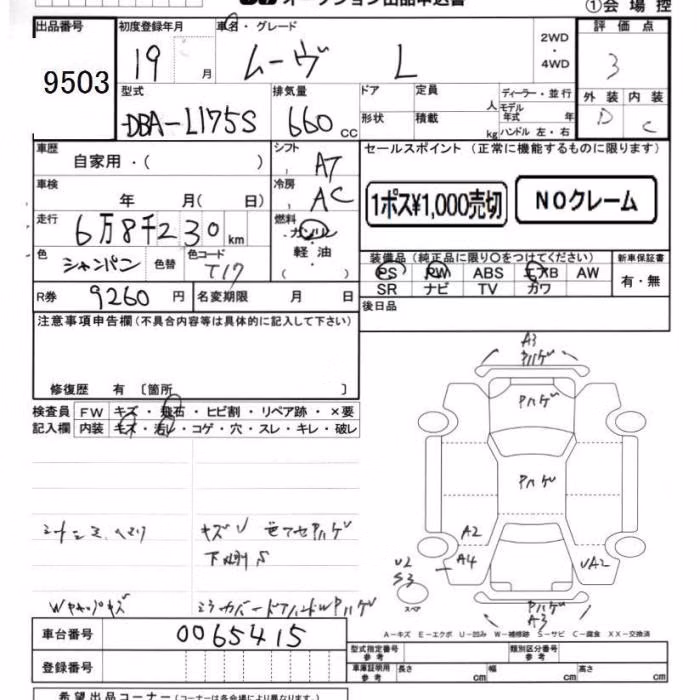 オークション出品申込書
①会場控
出品番号
9503
初度登録年月
車名・グレード
19 月
ムーヴ L
2WD
・
4WD
評価点
3
外装 内装
D C
型式
DBA-L175S
排気量
660 cc
ドア
定員 人
形状
積載 kg
ディーラー・並行
モデル年式 年
ハンドル 左・右
車歴
自家用・( )
シフト
AT
車検
年 月( 日)
冷房
AC
走行
6万8千230 km
燃料
ガソリン
・
軽油
( )
色
シャンパン
色替
色コード
T17
R券
9260 円
名変期限 月 日
セールスポイント(正常に機能するものに限ります)
1ポス¥1,000売切
NOクレーム
装備品(純正品に限り○をつけてください)
PS PW ABS エアB AW
SR ナビ TV カワ
新車保証書
有・無
後日品
注意事項申告欄(不具合内容等は具体的に記入して下さい)
修復歴 有 〔箇所 〕
検査員
記入欄
FW キズ・飛石・ヒビ割・リペア跡・×要
内装 キズ・汚レ・コゲ・穴・スレ・キレ・破レ
A3
Pハゲ
Pハゲ
Pハゲ
A2
A4
U2
S3
UA2
スペア
Pハゲ
A3
キズU 色アセPハゲ
下廻りS
Wキャップキズ
ミラーカバードアハンドルWPハゲ
A-キズ E-エクボ U-凹み W-補修跡 S-サビ C-腐食 XX-交換済
車台番号
0065415
登録番号
型式指定番号
参考
類別区分番号
参考
車庫証明用
参考
長さ cm 幅 cm 高さ cm
希望出品コーナー(コーナーは各会場により異なります。)